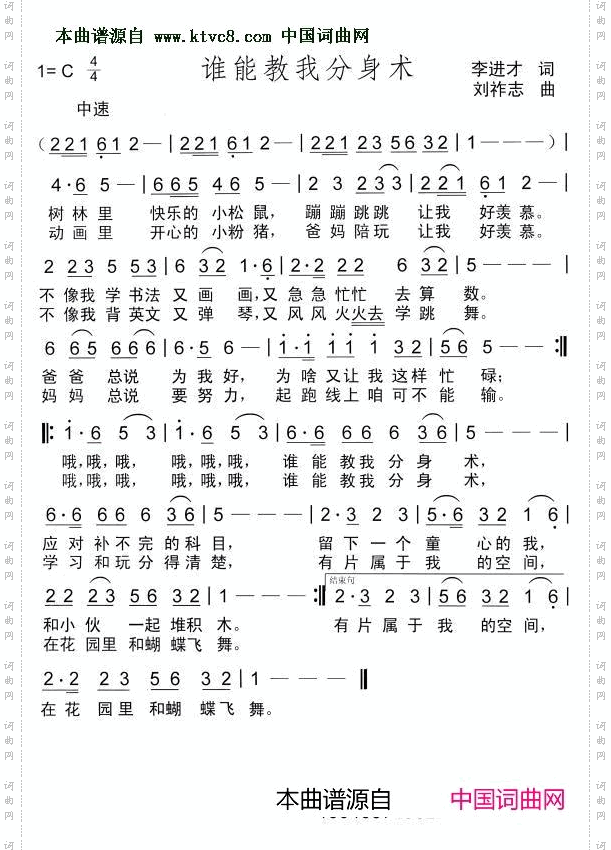 本曲谱源自 www.ktvc8.com 中国词曲网
1=C 4/4 谁能教我分身术 李进才 词
刘祚志 曲
中速
(2 2 1 6 1 2 — | 2 2 1 6 1 2 — | 2 2 1 2 3 5 6 3 2 | 1 — — — ) |
4 · 6 5 — | 6 6 5 4 6 5 — | 2 3 2 3 2 3 | 2 2 1 6 1 2 — |
树林里 快乐的 小松 鼠, 蹦蹦跳跳 让我 好羡慕。
动画里 开心的 小粉 猪, 爸妈陪玩 让我 好羡慕。
2 2 3 5 5 3 | 6 3 2 1 · 6 | 2 · 2 2 2 6 3 2 | 5 — — — |
不像我 学书法 又 画 画,又 急急忙忙 去算 数。
不像我 背英文 又 弹 琴,又 风风火火去 学跳 舞。
6 6 5 6 6 6 | 6 · 5 6 — | 1 · 1 1 1 1 3 2 | 5 6 5 — — :||
爸爸 总说 为我好, 为啥又让我这样忙 碌;
妈妈 总说 要努力, 起跑线上咱可不能 输。
||: 1 · 6 5 3 | 1 · 6 5 3 | 6 · 6 6 6 6 3 | 5 — — — |
哦,哦,哦, 哦,哦,哦, 谁能教我分身 术,
哦,哦,哦, 哦,哦,哦, 谁能教我分身 术,
6 · 6 6 6 6 3 6 | 5 — — — | 2 · 3 2 3 | 5 · 6 3 2 1 6 |
应对补不完的科目, 留下一个童 心的我,
学习和玩分得清楚, 有片属于我 的空间,
结束句
2 2 2 3 5 6 3 2 | 1 — — — :|| 2 · 3 2 3 | 5 6 3 2 1 6 |
和小伙 一起堆积 木。 有片属于我 的空间,
在花园里和蝴蝶飞 舞。
2 · 2 2 3 5 6 3 2 | 1 — — — ||
在花园里和蝴蝶飞 舞。
本曲谱源自 中国词曲网